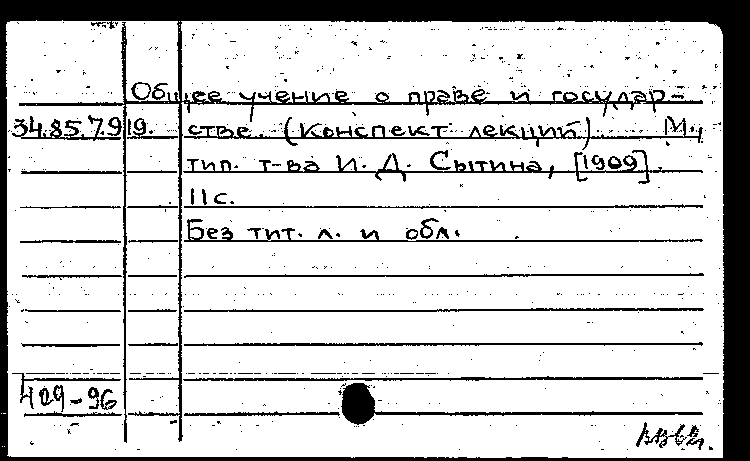 Общее учение о праве и государ-
34.85.7.919. стве. (Конспект лекций) М.,
тип. т-ва И. Д. Сытина, [1909].
11с.
Без тит. л. и обл.
409-96